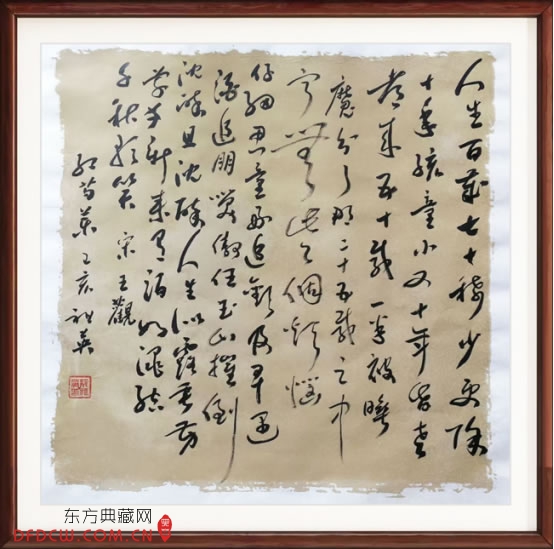 人生百歲七十稀少更除
十年孩童小又十年昏老
都来五十載一半被睡
魔分了那二十五載之中
宁無些個煩惱
仔細思量好追歡及早遇
酒追朋笑傲任玉山摧倒
沈醉且沈醉人生似露垂芳
草幸新来有酒如渑結
千秋歌笑 宋王觀
红芍药 亥 英
东方典藏网
DFDCW.COM.CN